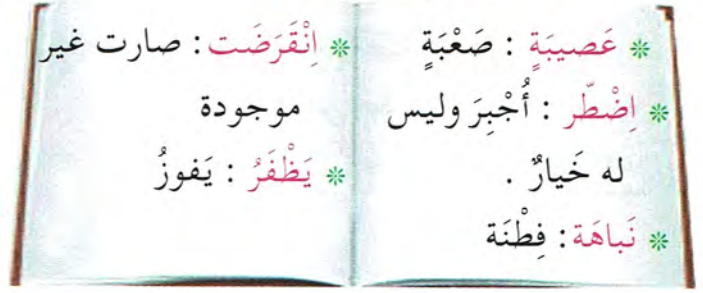 * عَصيبَةٍ : صَعْبَةٍ
* اِضْطّر : أُجْبِرَ وليس
له خَيارٌ .
* نَباهَة : فِطْنَة
* اِنْقَرَضَت : صارت غير
موجودة
* يَظْفَرُ : يَفوزُ